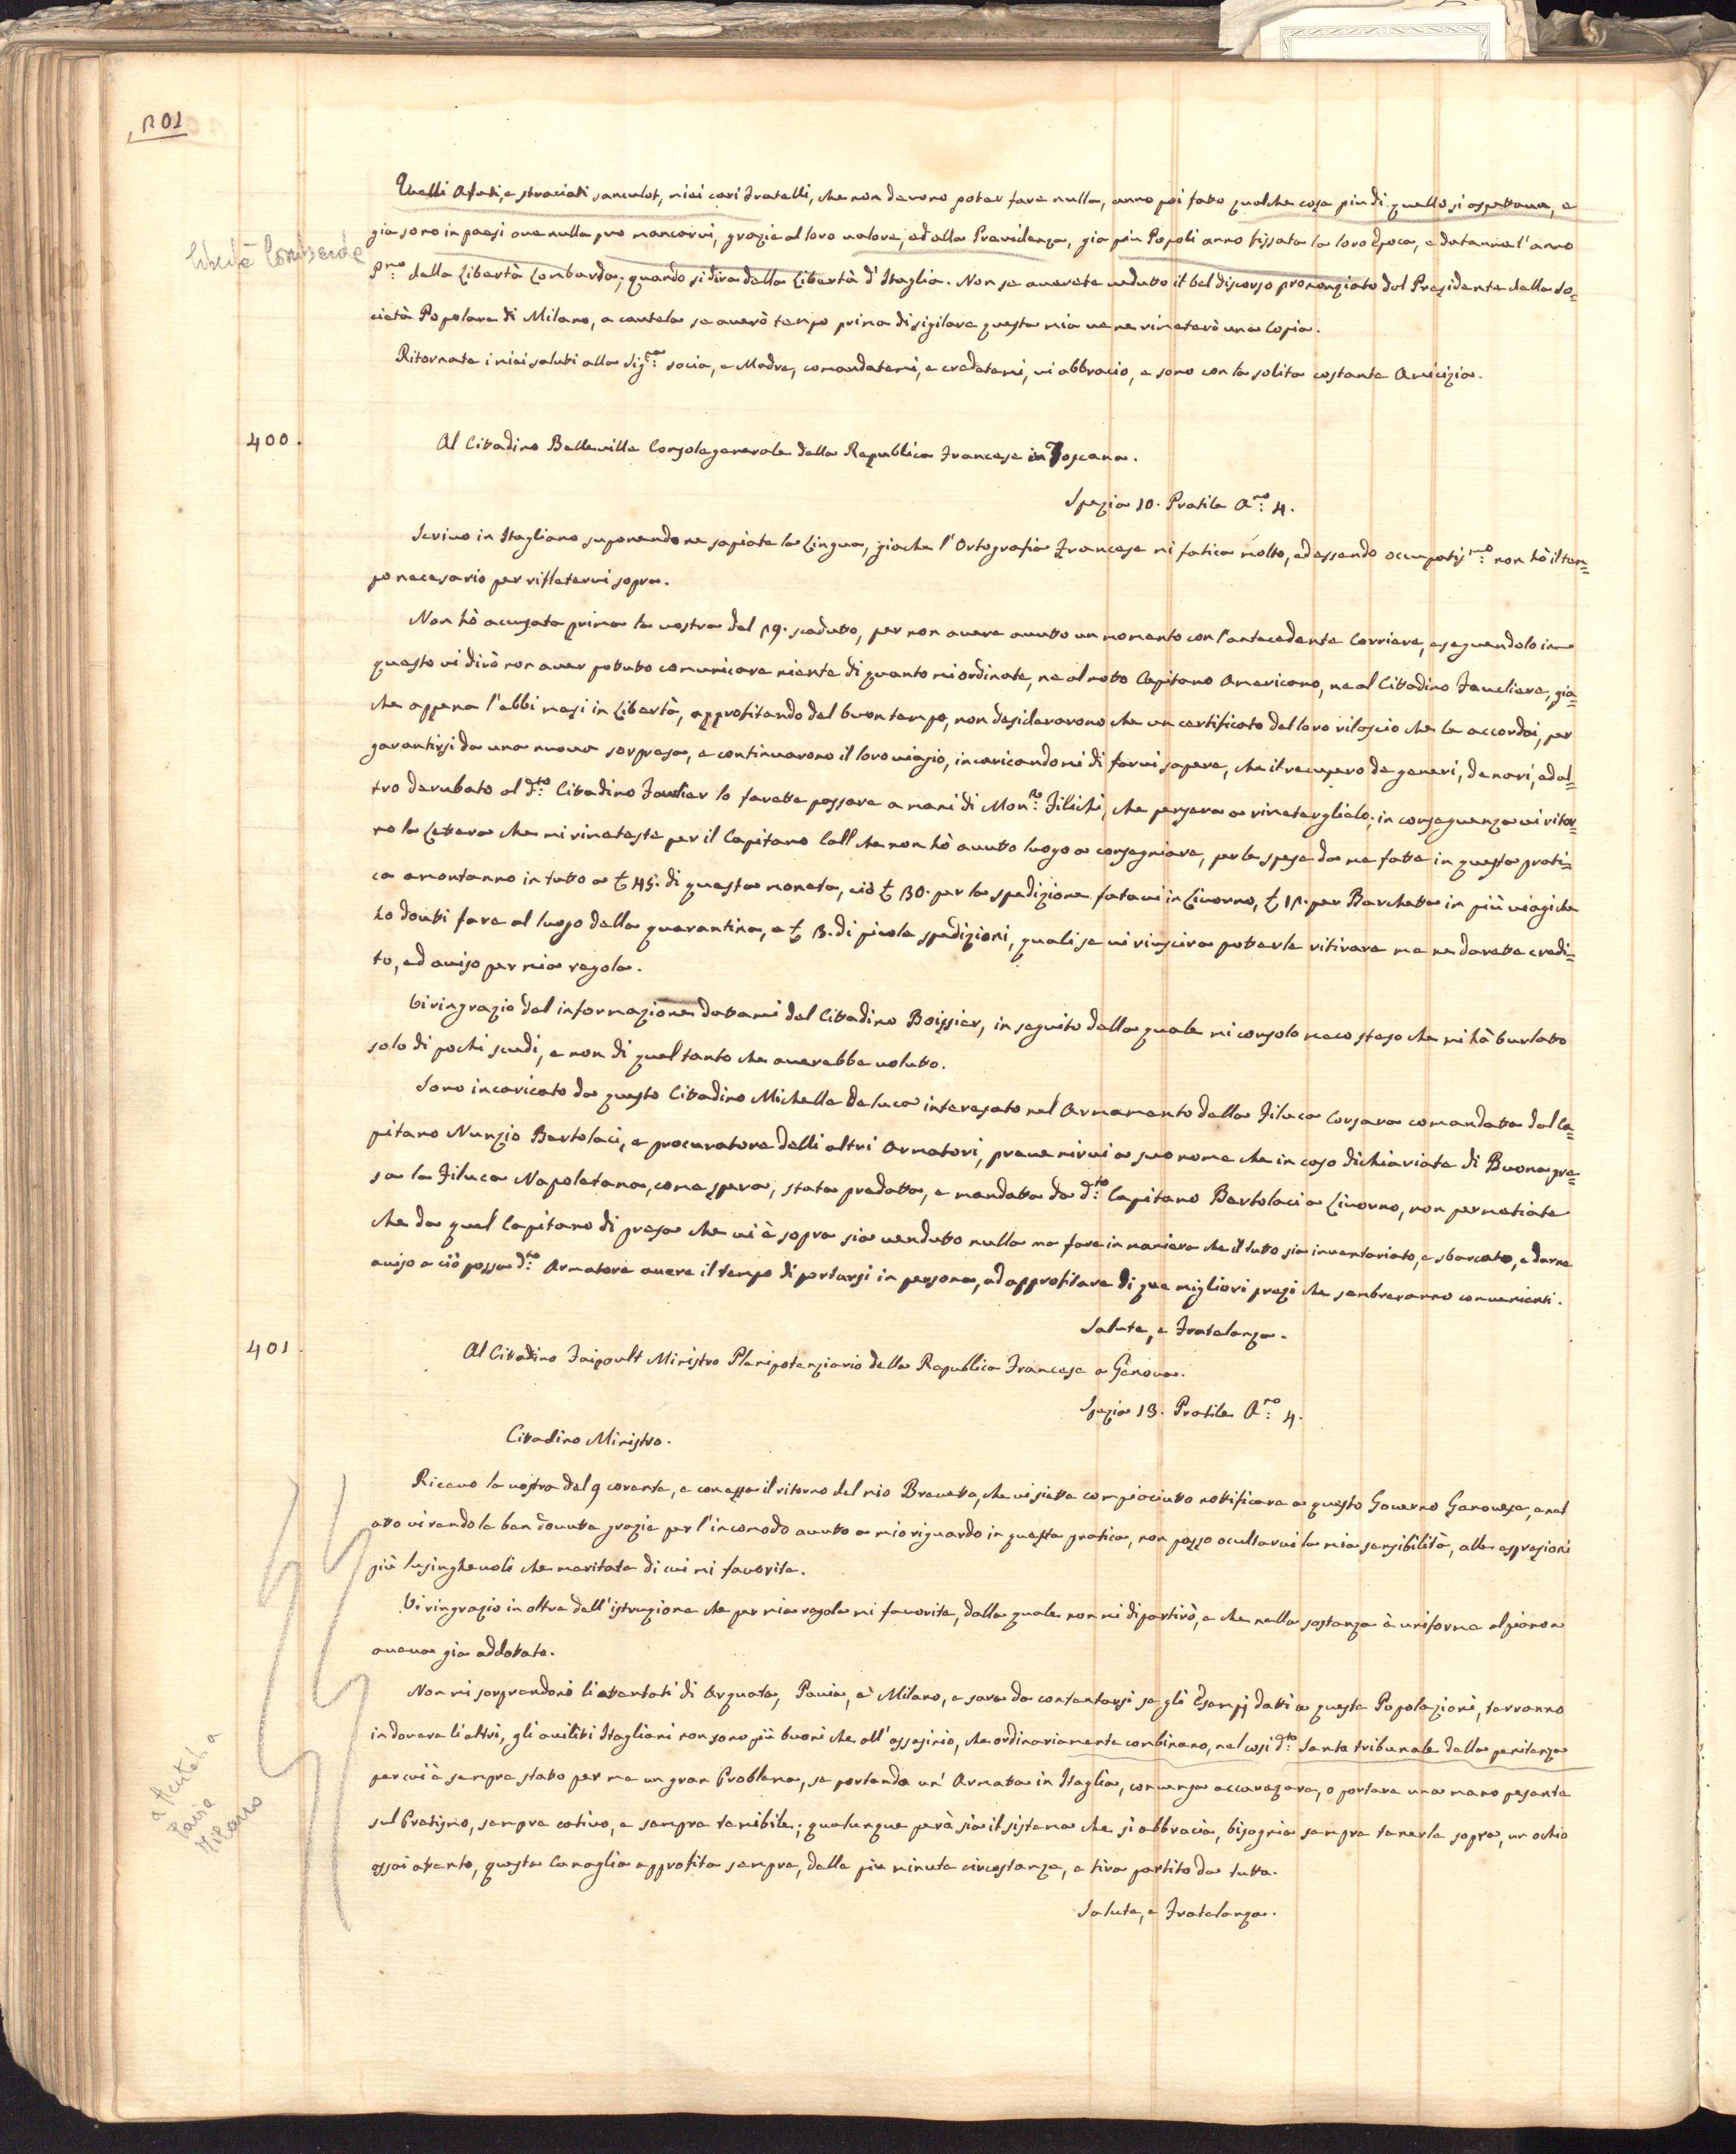 201
Quelli Afati, e straciati sanculot, miei cari Fratelli, che non devono poter fare nulla, anno poi fatto qualche cosa piu di quello si aspettava, e
Libertè Lombarde
gia sono in paesi ove nulla puo mancarvi, grazie al loro valore, ed alla Previdenza, gia piu Popoli anno fissata la loro Epoca, e datanno l'anno
Pmo della Libertà Lombarda; quando si dira della Libertà d'Itaglia. Non se averete veduto il bel discorso prononziato dal Presidente della So=
cietà Popolare di Milano, a cautela se averò tempo prima di sigilare questa mia ve ne rimeterò una Copia.
Ritornate i miei saluti alla Sig:ra socia, e Madre, comandatemi, e credetemi, vi abbracio, e sono con la solita costante Amicizia.
400.
Al Cittadino Belleville Console generale della Republica Francese in Toscana.
Spezia 10. Pratile A:no 4.
Scrivo in Itagliano suponendone sapiate la Lingua, giache l'Ortografia Francese mi fatica molto, ed essendo occupatis:mo non hò il tem=
po necesario per rifletervi sopra.
Non hò accusata prima la vostra del 19. scadutto, per non avere avutto un momento con l'antecedente Corriere, eseguendolo in
questo vi dirò non aver pottuto comunicare niente di quanto mi ordinate, ne al notto Capitano Americano, ne al Cittadino Faueliere, gia=
che appena l'ebbi mesi in Libertà, approfitando del buon tempo, non desiderarono che un certificato del loro rilascio che le accordai, per
garantirsi da una nuova sorpresa, e continuarono il loro viagio, incaricandomi di farvi sapere, che il recupero de generi, denari, ed al=
tro derubato al d:to Cittadino Fauelier lo farette passare a mani di Mon:r Filichi, che pensera a rimeterglielo; in conseguenza vi ritor=
no la Lettera che mi rimeteste per il Capitano Call che non hò avutto luogo a consegniare, per le spese da me fatte in questa prati=
ca amontanno in tutto a £ 45. di questa moneta, ciò £ 30. per la spedizione fatavi in Livorno, £ 12. per Barchetta in più viagi che
ho douti fare al luogo della quarantina, e £ 3. di picole spedizioni, quali se vi riuscira potterle ritirare me ne darette credi=
to, ed aviso per mia regola.
Vi ringrazio del informazione dattami del Cittadino Boissier, in seguito della quale mi consolo meco steso che mi hà burlatto
solo di pochi scudi, e non di quel tanto che averebbe volutto.
Sono incaricato da questo Cittadino Michelle Deluca interesato nel Armamento della Filuca Corsara comandatta dal Ca=
pitano Nunzio Bertolaci, e procuratore delli altri Armatori, prevenirvi a suo nome che in caso dichiariate di Buona pre=
sa la Filuca Napoletana, come spera, stata predatta, e mandatta da d:to Capitano Bertolaci a Livorno, non permetiate
che da quel Capitano di presa che vi è sopra sia vendutto nulla ma fare in maniera che il tutto sia inventariato, e sbarcato, e darne
aviso a ciò possa d:to Armatore avere il tempo di portarsi in persona, ad approfitare di que migliori prezi che sembreranno convenienti.
Salute, e Fratelanza.
401.
Al Cittadino Faipoult Ministro Plenipotenziario della Republica Francese a Genova.
Spezia 13. Pratile A:no 4.
Cittadino Ministro.
Ricevo la vostra del 9 corente, e con essa il ritorno del mio Brevetto, che vi siette compiaciutto nottificare a questo Governo Genovese, e nel
atto vi rendo le ben dovutte grazie per l'incomodo avutto a mio riguardo in questa pratica, non posso ocultarvi la mia sensibilità, alle espresioni
più lusinghevoli che meritate di cui mi favorite.
Vi ringrazio in oltre dell'istruzione che per mia regola mi favorite, dalla quale non mi dipartirò, e che nella sostanza è uniforme al piano a
aveva gia addotato.
a Acutela
Pavia
Milano
Non mi sorprendono li attentati di Arquata, Pavia, e Milano, e sara da contentarsi se gli Esempj datti a queste Popolazioni, terranno
in dovere li altri, gli aviliti Itagliani non sono più buoni che all'assasinio, che ordinariamente combinano, nel cosi d:to Santo tribunale della penitenza
per cui è sempre statto per me un gran Problema, se portando un'Armata in Itaglia, convenga accarezare, o portare una mano pesante
sul Pratismo, sempre cativo, e sempre temibile; qualunque però sia il sistema che si abbracia, bisognia sempre tenerle sopra, un ochio
assai atento, questa Canaglia approfita sempre, delle più minute circostanze, e tira partito da tutto.
Salute, e Fratelanza.